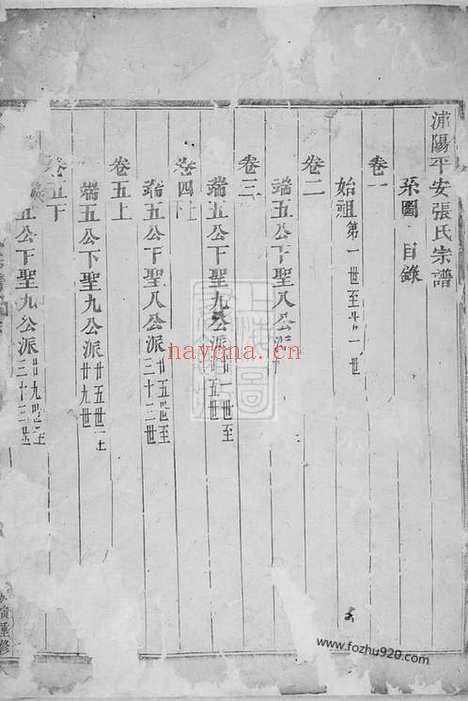 浦陽平安張氏宗譜
系圖 目錄
卷一
始祖第一世至廿一世
卷二
端五公下聖八公派
卷三
端五公下聖九公派廿一世至廿五世
卷四上
端五公下聖八公派廿五世至三十二世
卷五上
端五公下聖九公派廿五世至廿九世
卷五下
五公下聖九公派廿九世至三十三世
重修
hayqna.cn
www.fozhu920.com